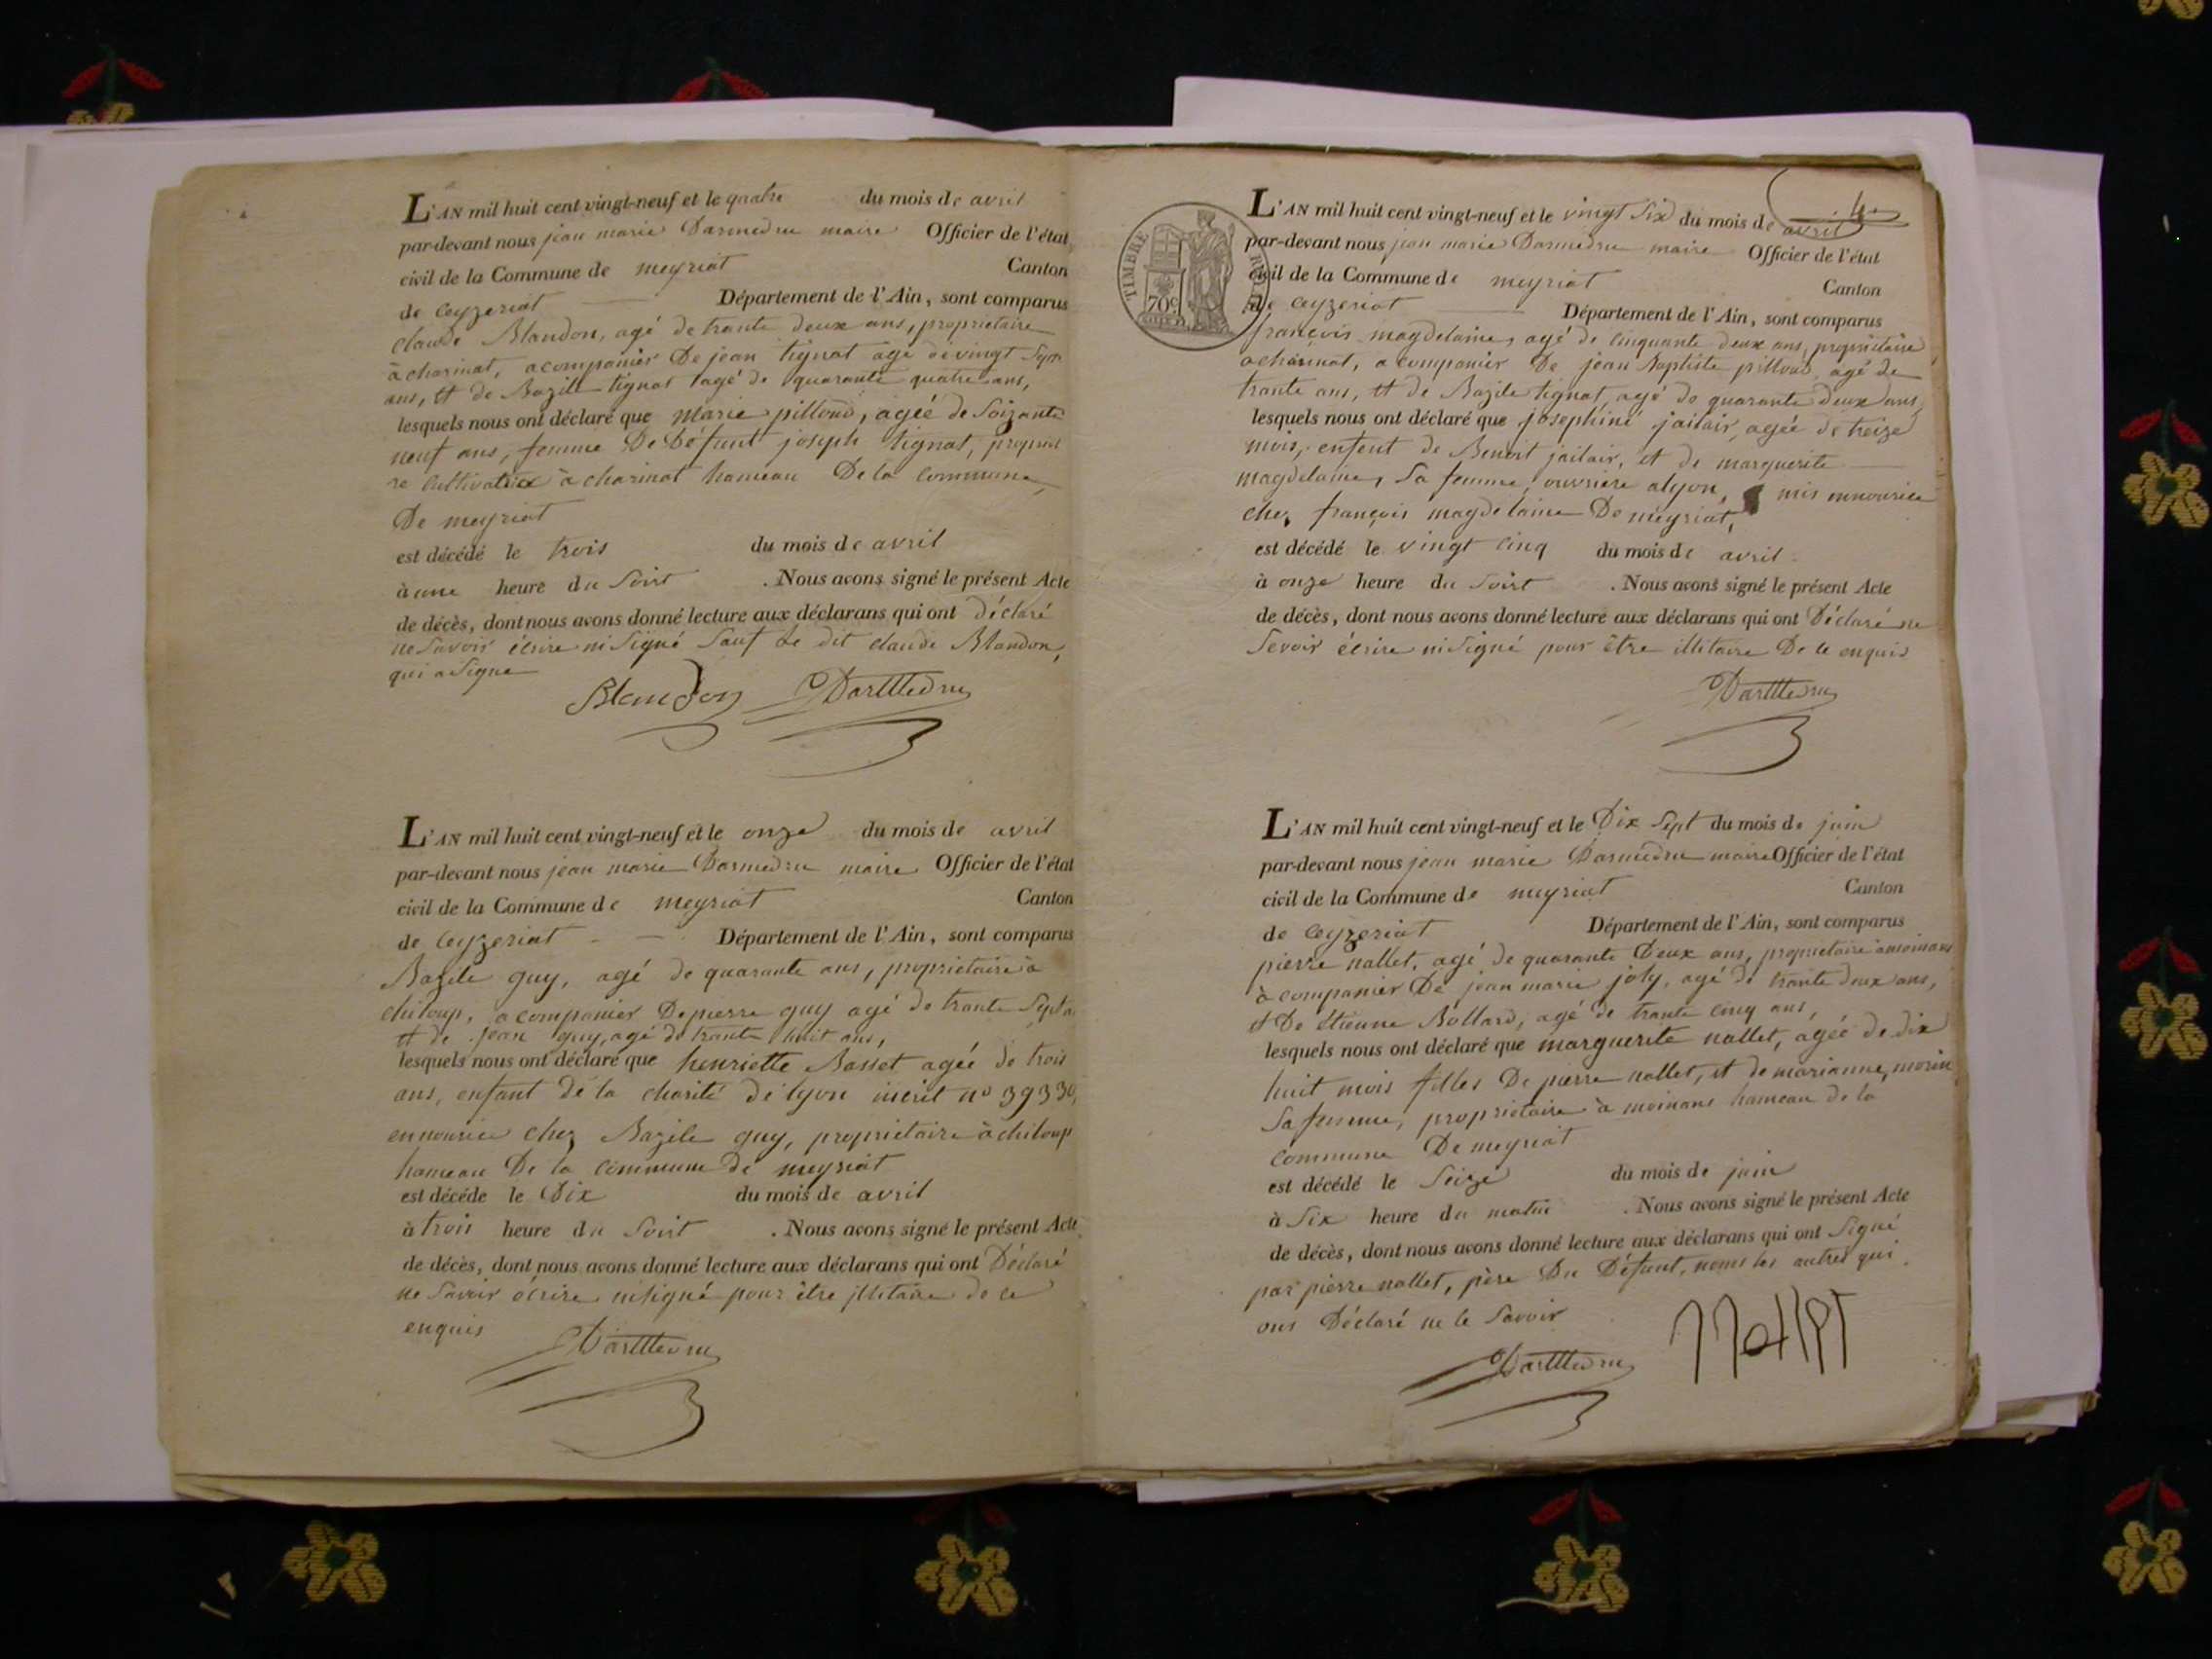 L'AN mil huit cent vingt-neuf et le quatre du mois de avril
par-devant nous jean marie Darmedru maire Officier de l'état
civil de la Commune de meyriat Canton
de Ceyzeriat Département de l'Ain, sont comparus
claude Blandon, agé de trante deux ans, proprietaire
à charinat, acompanier De jean tignat agé de vingt Sept
ans, et de Bazile tignat agé de quarante quatre ans,
lesquels nous ont déclaré que marie pilloud, agée de Soizante
neuf ans, femme De Défunt joseph tignat, propriet
re Cultivatrice à charinat hameau De la Commune
De meyriat
est décédé le trois du mois de avril
à une heure du Soirt . Nous avons signé le présent Acte
de décès, dont nous avons donné lecture aux déclarans qui ont déclaré
ne Savoir écrire ni Signé Sauf Le dit claude Blandon,
qui a Signe
Blandon DarMedru
L'AN mil huit cent vingt-neuf et le onze du mois de avril
par-devant nous jean marie Darmedru maire Officier de l'état
civil de la Commune de meyriat Canton
de Ceyzeriat Département de l'Ain, sont comparus
Bazile guy, agé de quarante ans, proprietaire à
chiloup, a companier De pierre guy agé de trante Sept a
et de jean guy, agé de trante huit ans,
lesquels nous ont déclaré que henriette Basset agée de trois
ans, enfant de la charité de lyon inerit no 39330,
ennourice chez Bazile guy, proprietaire à chiloup
hameau De la commune de meyriat
est décédé le Dix du mois de avril
à trois heure du Soirt . Nous avons signé le présent Acte
de décès, dont nous avons donné lecture aux déclarans qui ont Déclaré
ne Savoir écrire ni signé pour être illitaire de ce
enquis
DarMedru
4
TIMBRE ROYAL
70c
L'AN mil huit cent vingt-neuf et le vingt Six du mois de avril
par-devant nous jean marie Darmedru maire Officier de l'état
civil de la Commune de meyriat Canton
de Ceyzeriat Département de l'Ain, sont comparus
françois magdelaine, agé de Cinquante deux ans, proprietaire
acharinat, a companier De jean Baptiste pilloud agé de
trante ans, et de Bazile tignat, agé de quarante deux ans,
lesquels nous ont déclaré que josephine jailair, agée de treize
mois, enfent de Benoit jailair, et de marguerite
magdelaine, Sa femme, ouvriere alyon, mis ennourice
chez françois magdelaine De meyriat,
est décédé le vingt cinq du mois de avril
à onze heure du Soirt . Nous avons signé le présent Acte
de décès, dont nous avons donné lecture aux déclarans qui ont Déclaré ne
Sevoir écrire ni Signé pour être illitaire De ce enquis
DarMedru
L'AN mil huit cent vingt-neuf et le Dix Sept du mois de juin
par-devant nous jean marie Darmedru maire Officier de l'état
civil de la Commune de meyriat Canton
de Ceyzeriat Département de l'Ain, sont comparus
pierre nallet, agé de quarante Deux ans, proprietaire amoinans
à companier De jean marie joly, agé de trante deux ans,
et De Etienne Bollard, agé de trante cinq ans,
lesquels nous ont déclaré que marguerite nallet, agée de dix
huit mois filles De pierre nallet, et de marianne, morin
Sa femme, proprietaire à moinans hameau de la
commune De meyriat
est décédé le Seize du mois de juin
à Six heure du matin . Nous avons signé le présent Acte
de décès, dont nous avons donné lecture aux déclarans qui ont Signé
par pierre nallet, père Du Défunt, les autres qui
ons Déclaré ne le Savoir
DarMedru Nallet